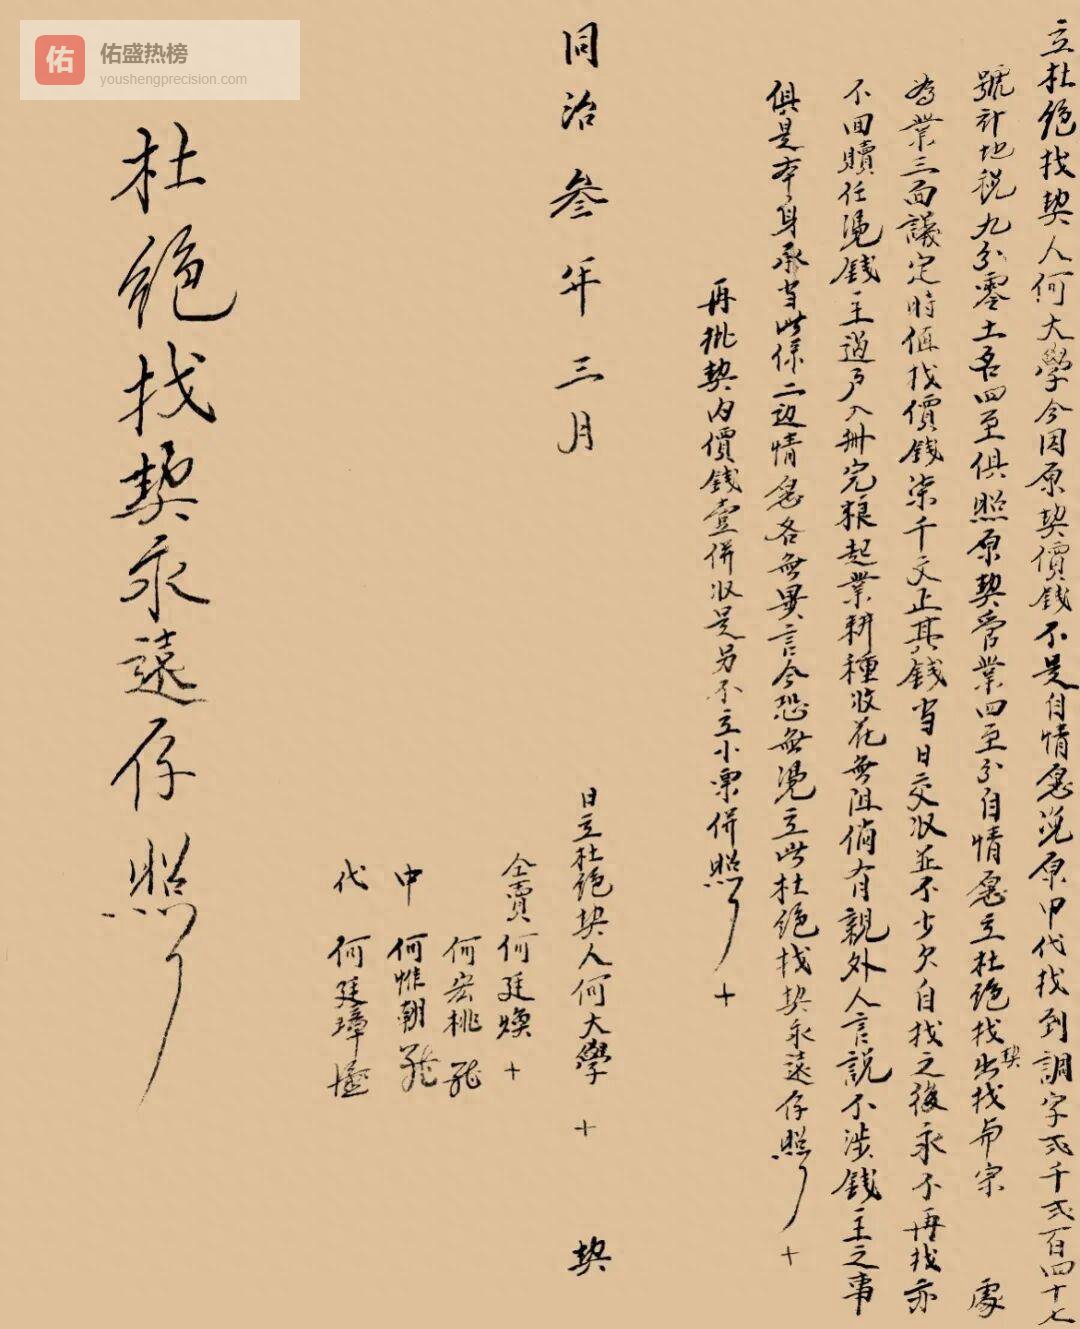 佑
佑盛热榜
youshengprecision.com
立杜絕找契人何大學今因原契價錢不足自情愿浼原中代找到調字弍千弍百四十七
號計地稅九分零土名四至俱照原契管業四至分自情愿立杜絕找契出找與宗 處
為業三面議定時值找價錢柒千文正其錢当日交收並不少欠自找之後永不再找亦
不回贖任憑錢主過户入册完粮起業耕種收花無阻倘有親外人言說不涉錢主之事
俱是本身承当此係二边情愿各無異言今恐無憑立此杜絕找契永遠存照 十
再批契内價錢壹併收足另不立小票併照 十
同治叁年三月 日立杜絕契人何大學 十 契
仝賣何廷煥 十
何宏桃
中 何惟朝
代 何廷璋
杜絕找契永遠存照